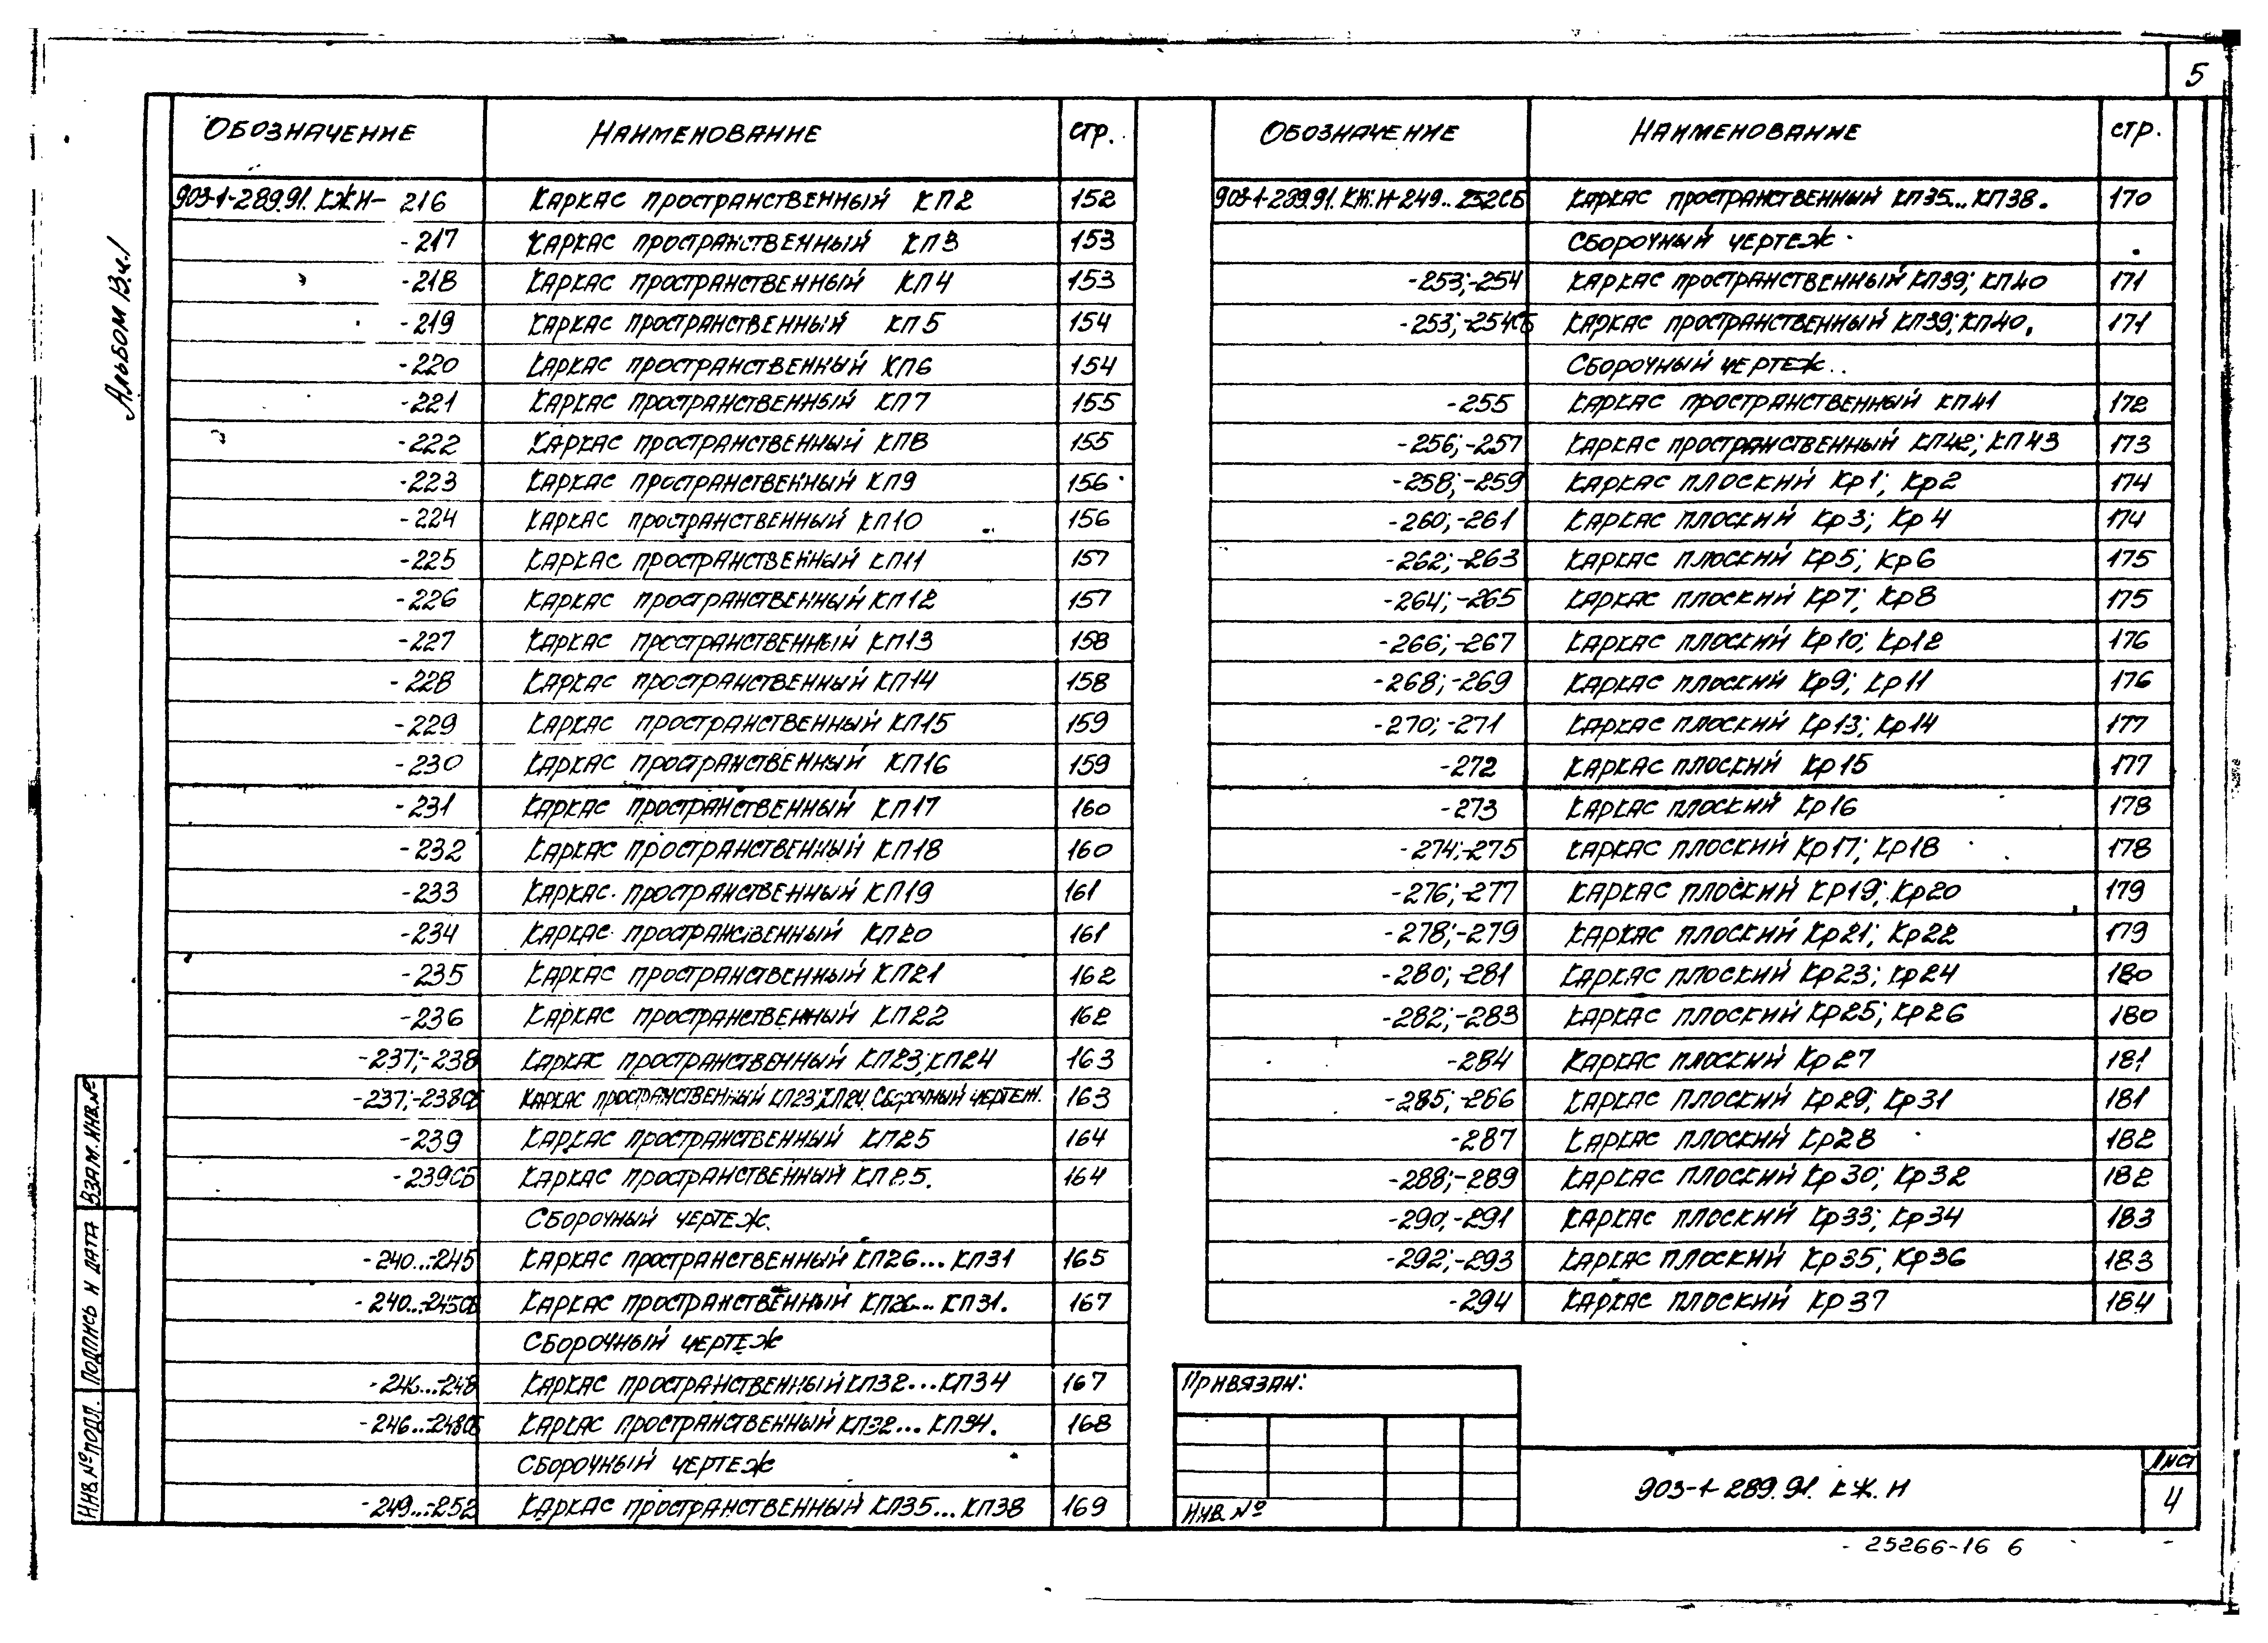 5
Альбом 13 ч.1
Обозначение Наименование стр.
903-1-289.91.КЖН- 216 Каркас пространственный КП2 152
-217 Каркас пространственный КП3 153
-218 Каркас пространственный КП4 153
-219 Каркас пространственный КП5 154
-220 Каркас пространственный КП6 154
-221 Каркас пространственный КП7 155
-222 Каркас пространственный КП8 155
-223 Каркас пространственный КП9 156
-224 Каркас пространственный КП10 156
-225 Каркас пространственный КП11 157
-226 Каркас пространственный КП12 157
-227 Каркас пространственный КП13 158
-228 Каркас пространственный КП14 158
-229 Каркас пространственный КП15 159
-230 Каркас пространственный КП16 159
-231 Каркас пространственный КП17 160
-232 Каркас пространственный КП18 160
-233 Каркас пространственный КП19 161
-234 Каркас пространственный КП20 161
-235 Каркас пространственный КП21 162
-236 Каркас пространственный КП22 162
-237;-238 Каркас пространственный КП23;КП24 163
-237;-238СБ Каркас пространственный КП23;КП24. Сборочный чертеж. 163
-239 Каркас пространственный КП25 164
-239СБ Каркас пространственный КП25. 164
Сборочный чертеж.
-240...-245 Каркас пространственный КП26...КП31 165
-240...-245СБ Каркас пространственный КП26...КП31. 167
Сборочный чертеж
-246...-248 Каркас пространственный КП32...КП34 167
-246...-248СБ Каркас пространственный КП32...КП34. 168
Сборочный чертеж
-249...-252 Каркас пространственный КП35...КП38 169
Обозначение Наименование стр.
903-1-289.91.КЖ.Н-249..252СБ Каркас пространственный КП35...КП38. 170
Сборочный чертеж
-253;-254 Каркас пространственный КП39; КП40 171
-253;-254СБ Каркас пространственный КП39;КП40. 171
Сборочный чертеж..
-255 Каркас пространственный КП41 172
-256;-257 Каркас пространственный КП42; КП43 173
-258;-259 Каркас плоский Кр1; Кр2 174
-260;-261 Каркас плоский Кр3; Кр4 174
-262;-263 Каркас плоский Кр5; Кр6 175
-264;-265 Каркас плоский Кр7; Кр8 175
-266;-267 Каркас плоский Кр10; Кр12 176
-268;-269 Каркас плоский Кр9; Кр11 176
-270;-271 Каркас плоский Кр13; Кр14 177
-272 Каркас плоский Кр15 177
-273 Каркас плоский Кр16 178
-274;-275 Каркас плоский Кр17; Кр18 178
-276;-277 Каркас плоский Кр19; Кр20 179
-278;-279 Каркас плоский Кр21; Кр22 179
-280;-281 Каркас плоский Кр23; Кр24 180
-282;-283 Каркас плоский Кр25; Кр26 180
-284 Каркас плоский Кр27 181
-285;-286 Каркас плоский Кр29; Кр31 181
-287 Каркас плоский Кр28 182
-288;-289 Каркас плоский Кр30; Кр32 182
-290;-291 Каркас плоский Кр33; Кр34 183
-292;-293 Каркас плоский Кр35; Кр36 183
-294 Каркас плоский Кр37 184
Взам. инв.№
Подпись и дата
Инв.№подл.
Привязан:
Инв №
903-1-289.91.КЖ.Н
Лист
4
25266-16 6